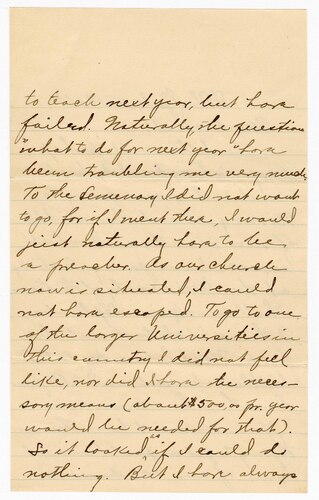 to teach next year, but have
failed. Naturally, the question
"what to do for next year" have
been troubling me very much.
To the Semenary I did not want
to go, for if I went there, I would
jeist naturally have to be
a preacher. As our church
now is situated, I could
not have escaped. To go to one
of the larger Universities in
this country I did not feel
like, nor did I have the neces-
sary means (about $500,00 pr. year
would be needed for that).
So it looked as if I could do
nothing. But I have always